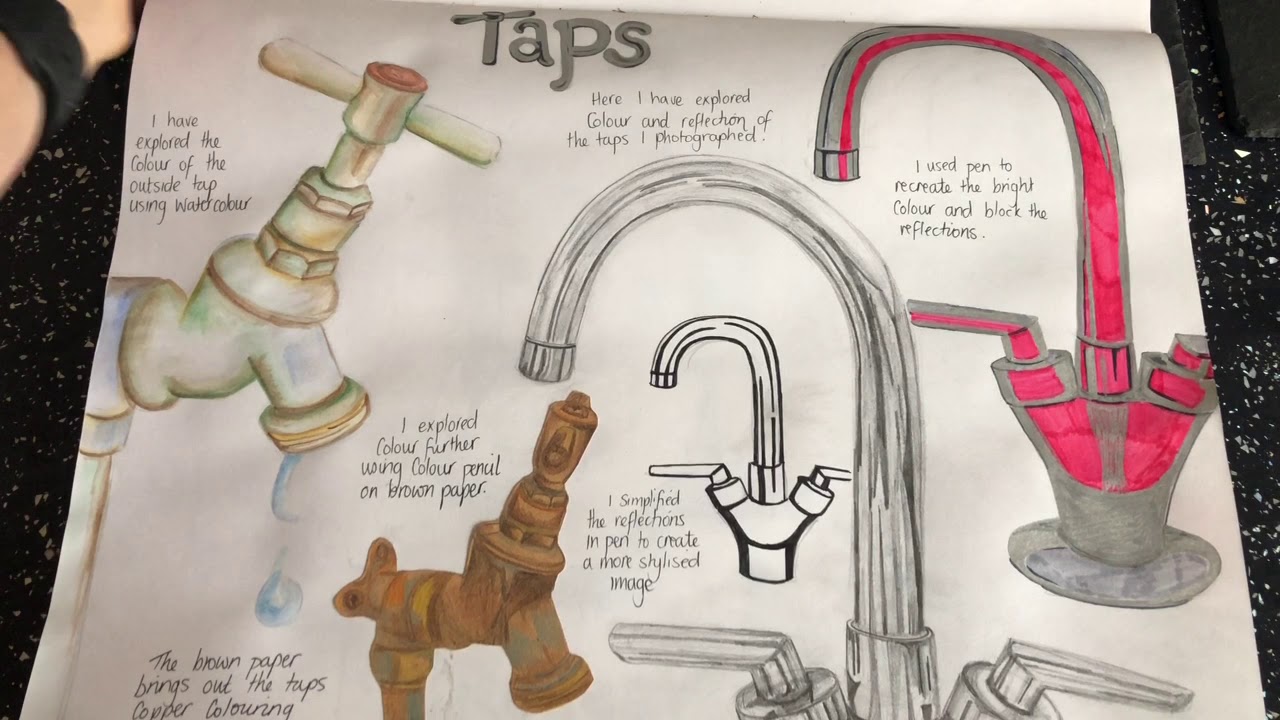 Taps
I have
explored the
Colour of the
outside tap
using Watercolour
Here I have explored
Colour and reflection of
the taps I photographed.
I used pen to
recreate the bright
Colour and block the
reflections.
I explored
Colour further
using Colour pencil
on brown paper.
I simplified
the reflections
in pen to create
a more stylised
image
The brown paper
brings out the taps
Copper Colouring